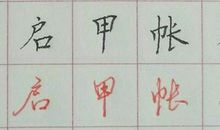 启甲帐
启甲帐